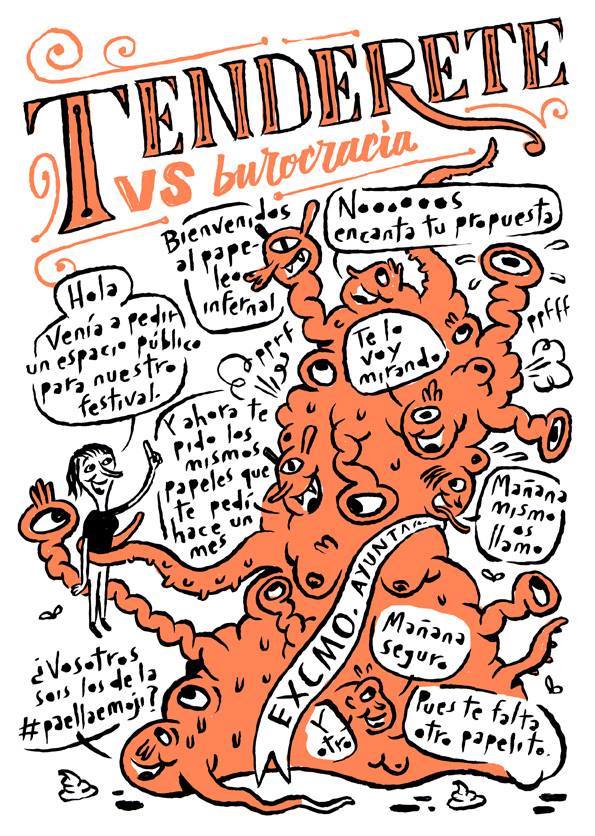 TENDERETE
VS burocracia
Bienvenidos
al pape-
leo
infernal
Noooooos
encanta tu propuesta
Hola
Venía a pedir
un espacio público
para nuestro
festival.
Te lo
voy
mirando
pprrf
ppfff
Y ahora te
pido los
mismos
papeles que
te pedí
hace un
mes
Mañana
mismo
os
llamo
EXCMO. AYUNTAº.
Mañana
seguro
¿Vosotros
sois los de la
#paellaemoji?
Y
otro
Pues te falta
otro papelito.